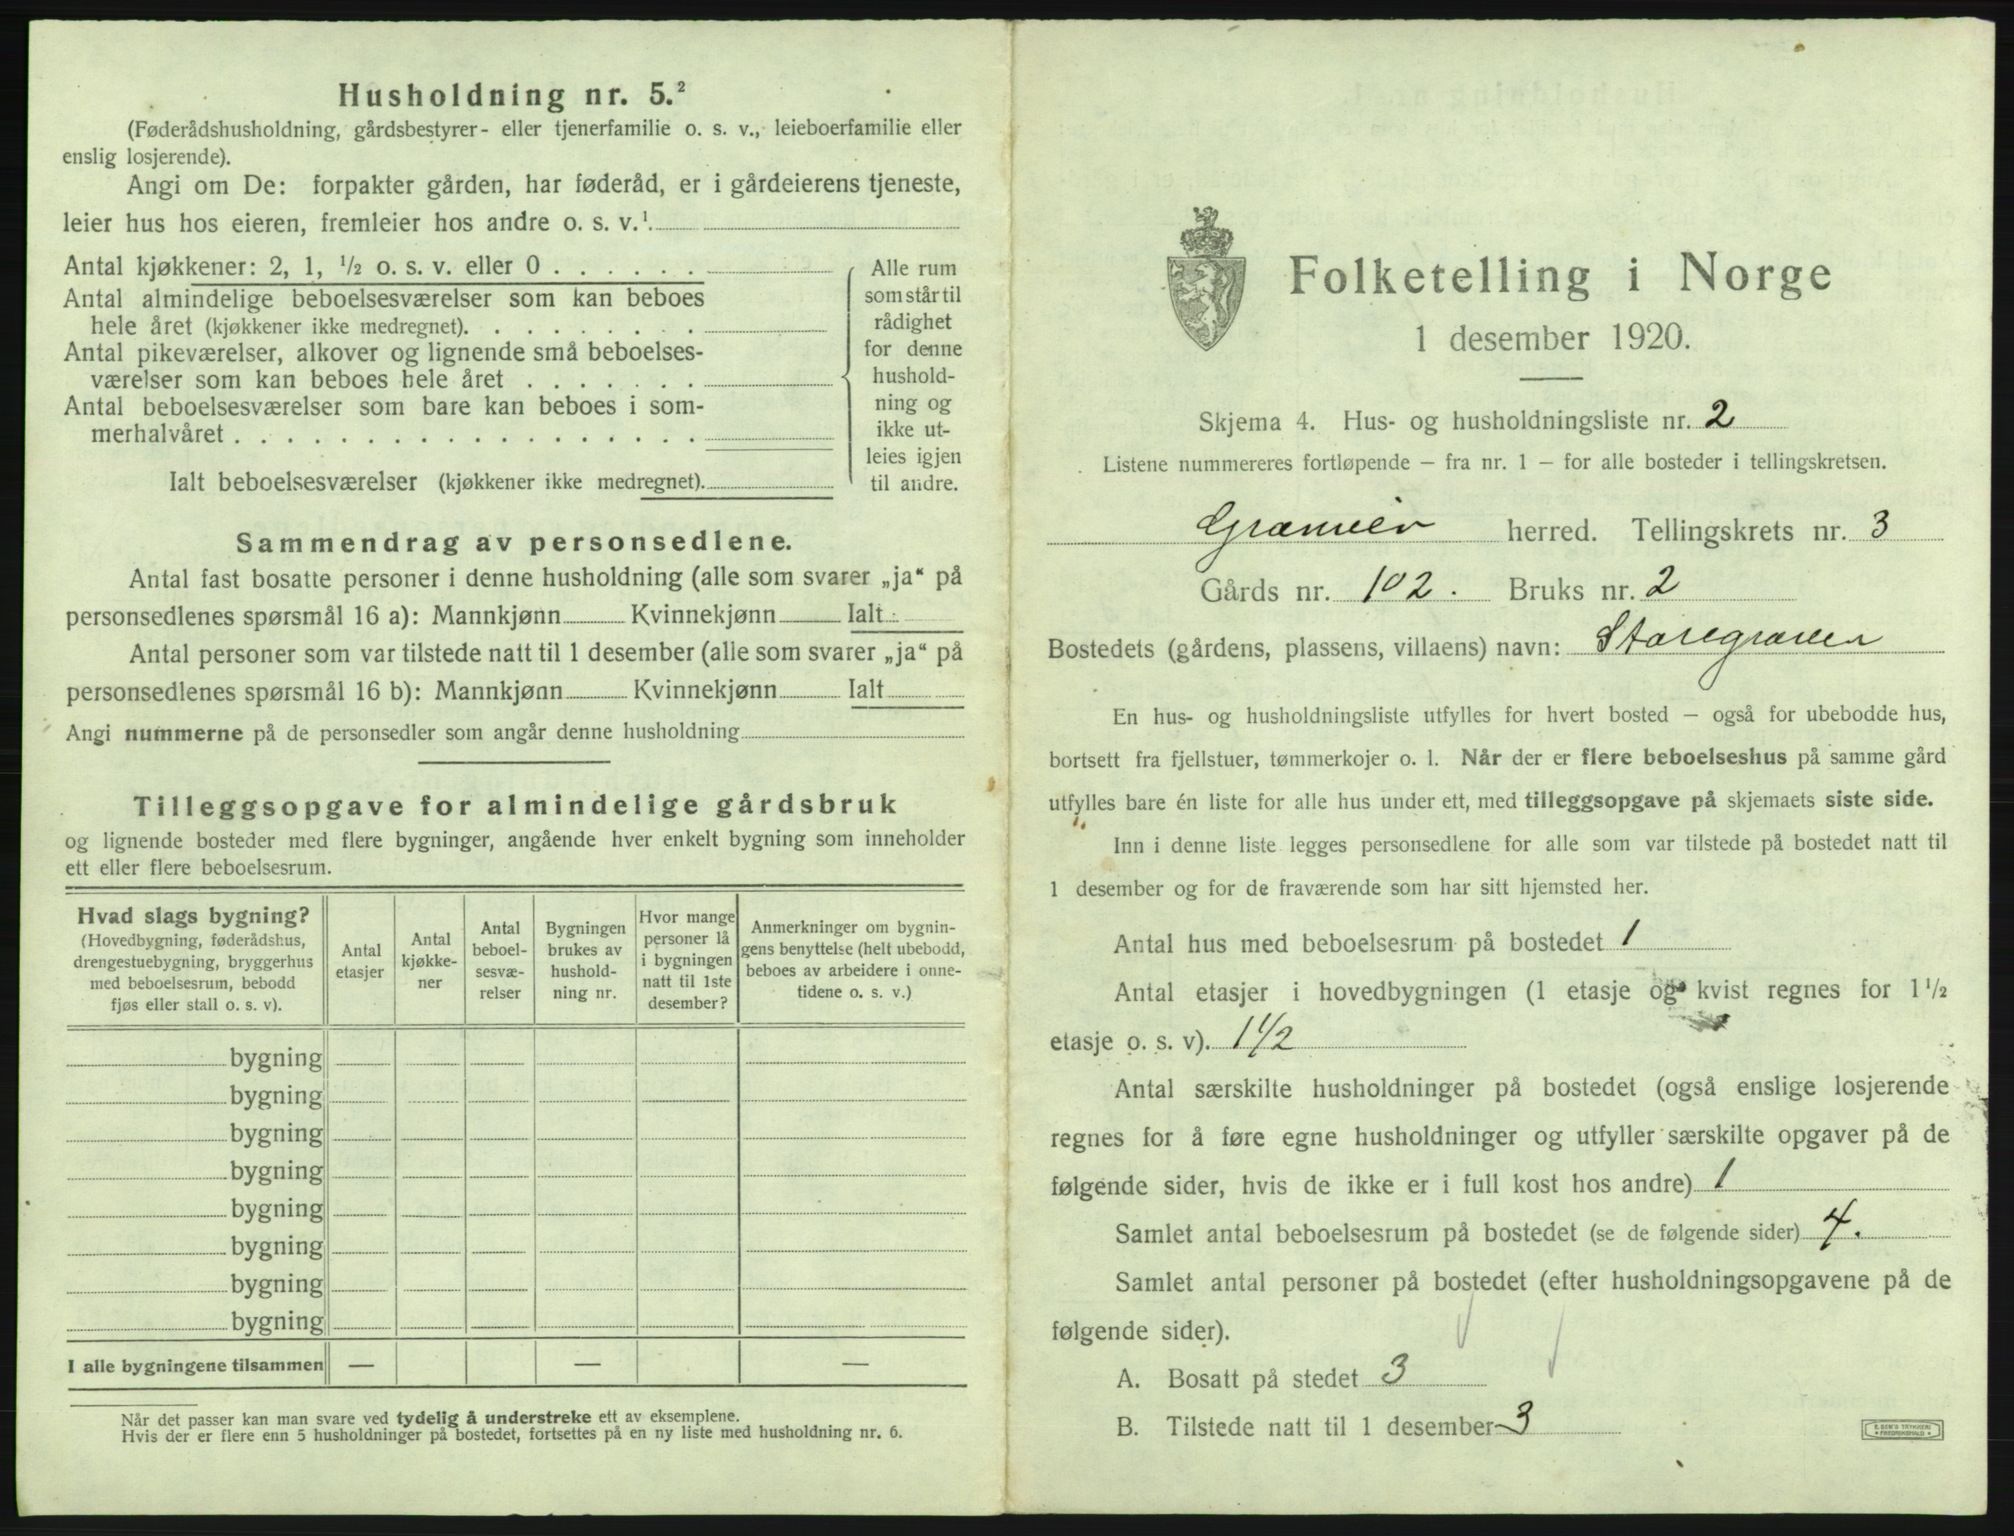 Husholdning nr. 5.²
(Føderådshusholdning, gårdsbestyrer- eller tjenerfamilie o. s. v., leieboerfamilie eller
enslig losjerende).
Angi om De: forpakter gården, har føderåd, er i gårdeierens tjeneste,
leier hus hos eieren, fremleier hos andre o. s. v.¹
Antal kjøkkener: 2, 1, ½ o. s. v. eller 0 . . . . . .
Antal almindelige beboelsesværelser som kan beboes
hele året (kjøkkener ikke medregnet). . . . . . . . .
Antal pikeværelser, alkover og lignende små beboelses-
værelser som kan beboes hele året . . . . . . .
Antal beboelsesværelser som bare kan beboes i som-
merhalvåret . . . . . . . . . . . . . . . . . .
Ialt beboelsesværelser (kjøkkener ikke medregnet).
Alle rum
som står til
rådighet
for denne
hushold-
ning og
ikke ut-
leies igjen
til andre.
Sammendrag av personsedlene.
Antal fast bosatte personer i denne husholdning (alle som svarer „ja“ på
personsedlenes spørsmål 16 a): Mannkjønn Kvinnekjønn Ialt
Antal personer som var tilstede natt til 1 desember (alle som svarer „ja“ på
personsedlenes spørsmål 16 b): Mannkjønn Kvinnekjønn Ialt
Angi nummerne på de personsedler som angår denne husholdning
Tilleggsopgave for almindelige gårdsbruk
og lignende bosteder med flere bygninger, angående hver enkelt bygning som inneholder
ett eller flere beboelsesrum.
Hvad slags bygning?
(Hovedbygning, føderådshus,
drengestuebygning, bryggerhus
med beboelsesrum, bebodd
fjøs eller stall o. s. v).
Antal
etasjer
Antal
kjøkke-
ner
Antal
beboel-
sesvæ-
relser
Bygningen
brukes av
hushold-
ning nr.
Hvor mange
personer lå
i bygningen
natt til 1ste
desember?
Anmerkninger om bygnin-
gens benyttelse (helt ubebodd,
beboes av arbeidere i onne-
tidene o. s. v.)
bygning
bygning
bygning
bygning
bygning
bygning
bygning
bygning
I alle bygningene tilsammen — — —
Når det passer kan man svare ved tydelig å understreke ett av eksemplene.
Hvis der er flere enn 5 husholdninger på bostedet, fortsettes på en ny liste med husholdning nr. 6.
Folketelling i Norge
1 desember 1920.
Skjema 4. Hus- og husholdningsliste nr. 2
Listene nummereres fortløpende — fra nr. 1 — for alle bosteder i tellingskretsen.
herred. Tellingskrets nr. 3
Gårds nr. 102. Bruks nr. 2
Bostedets (gårdens, plassens, villaens) navn:
En hus- og husholdningsliste utfylles for hvert bosted — også for ubebodde hus,
bortsett fra fjellstuer, tømmerkojer o. l. Når der er flere beboelseshus på samme gård
utfylles bare én liste for alle hus under ett, med tilleggsopgave på skjemaets siste side.
Inn i denne liste legges personsedlene for alle som var tilstede på bostedet natt til
1 desember og for de fraværende som har sitt hjemsted her.
Antal hus med beboelsesrum på bostedet 1
Antal etasjer i hovedbygningen (1 etasje og kvist regnes for 1 ½
etasje o. s. v). 1 1/2
Antal særskilte husholdninger på bostedet (også enslige losjerende
regnes for å føre egne husholdninger og utfyller særskilte opgaver på de
følgende sider, hvis de ikke er i full kost hos andre) 1
Samlet antal beboelsesrum på bostedet (se de følgende sider) 4.
Samlet antal personer på bostedet (efter husholdningsopgavene på de
følgende sider).
A. Bosatt på stedet 3
B. Tilstede natt til 1 desember 3